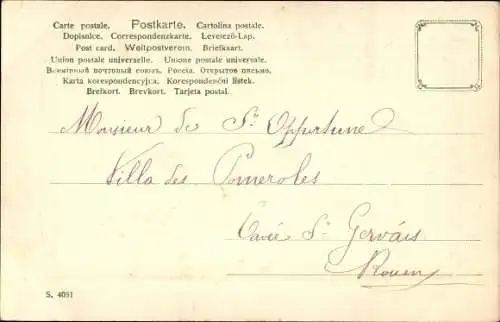 Carte postale. Postkarte. Cartolina postale.
Dopisnice. Correspondenzkarte. Levelező-Lap.
Post card. Weltpostverein. Briefkaart.
Union postale universelle. Unione postale universale.
Всемірный почтовый союзъ. Россія. Открытое письмо.
Karta korespondencyjna. Korespondenční lístek.
Brefkort. Brevkort. Tarjeta postal.
Monsieur de St Oppertune
Villa des Pomeroles
Cavée St Gervais
Rouen
S. 4051